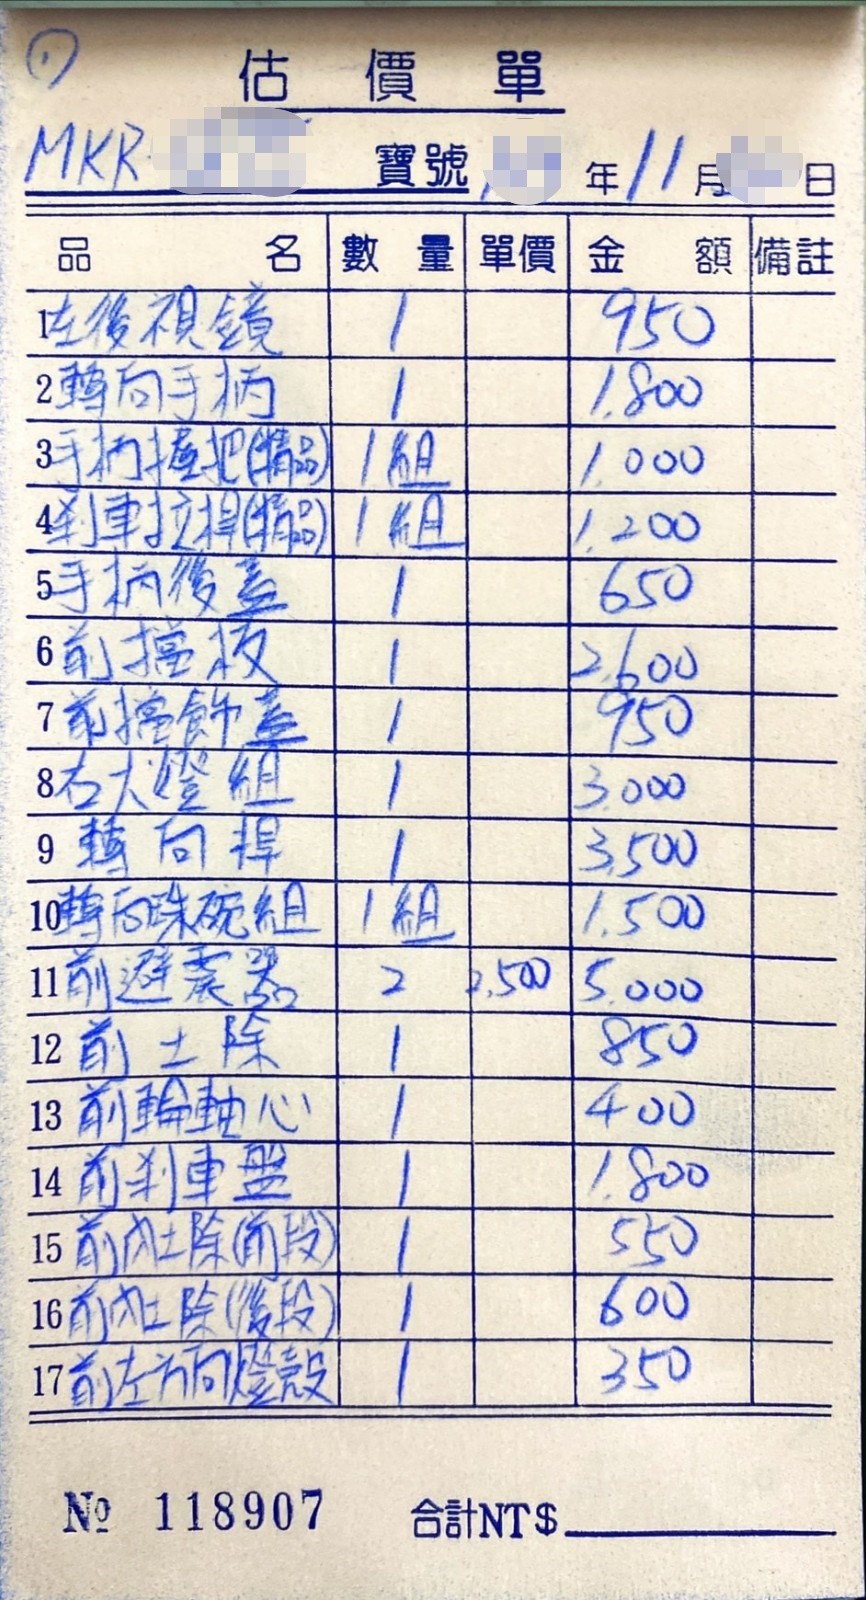 ①
估價單
MKR 寶號 年 11 月 日
品名 數量 單價 金額 備註
1 左後視鏡 1 950
2 轉向手柄 1 1,800
3 手柄握把(精品) 1組 1,000
4 剎車拉桿(精品) 1組 1,200
5 手柄後蓋 1 650
6 前擋板 1 2,600
7 前擋飾蓋 1 950
8 右大燈組 1 3,000
9 轉向桿 1 3,500
10 轉向珠碗組 1組 1,500
11 前避震器 2 2,500 5,000
12 前土除 1 850
13 前輪軸心 1 400
14 前剎車盤 1 1,800
15 前內土除(前段) 1 550
16 前內土除(後段) 1 600
17 前左方向燈殼 1 350
№ 118907 合計NT$